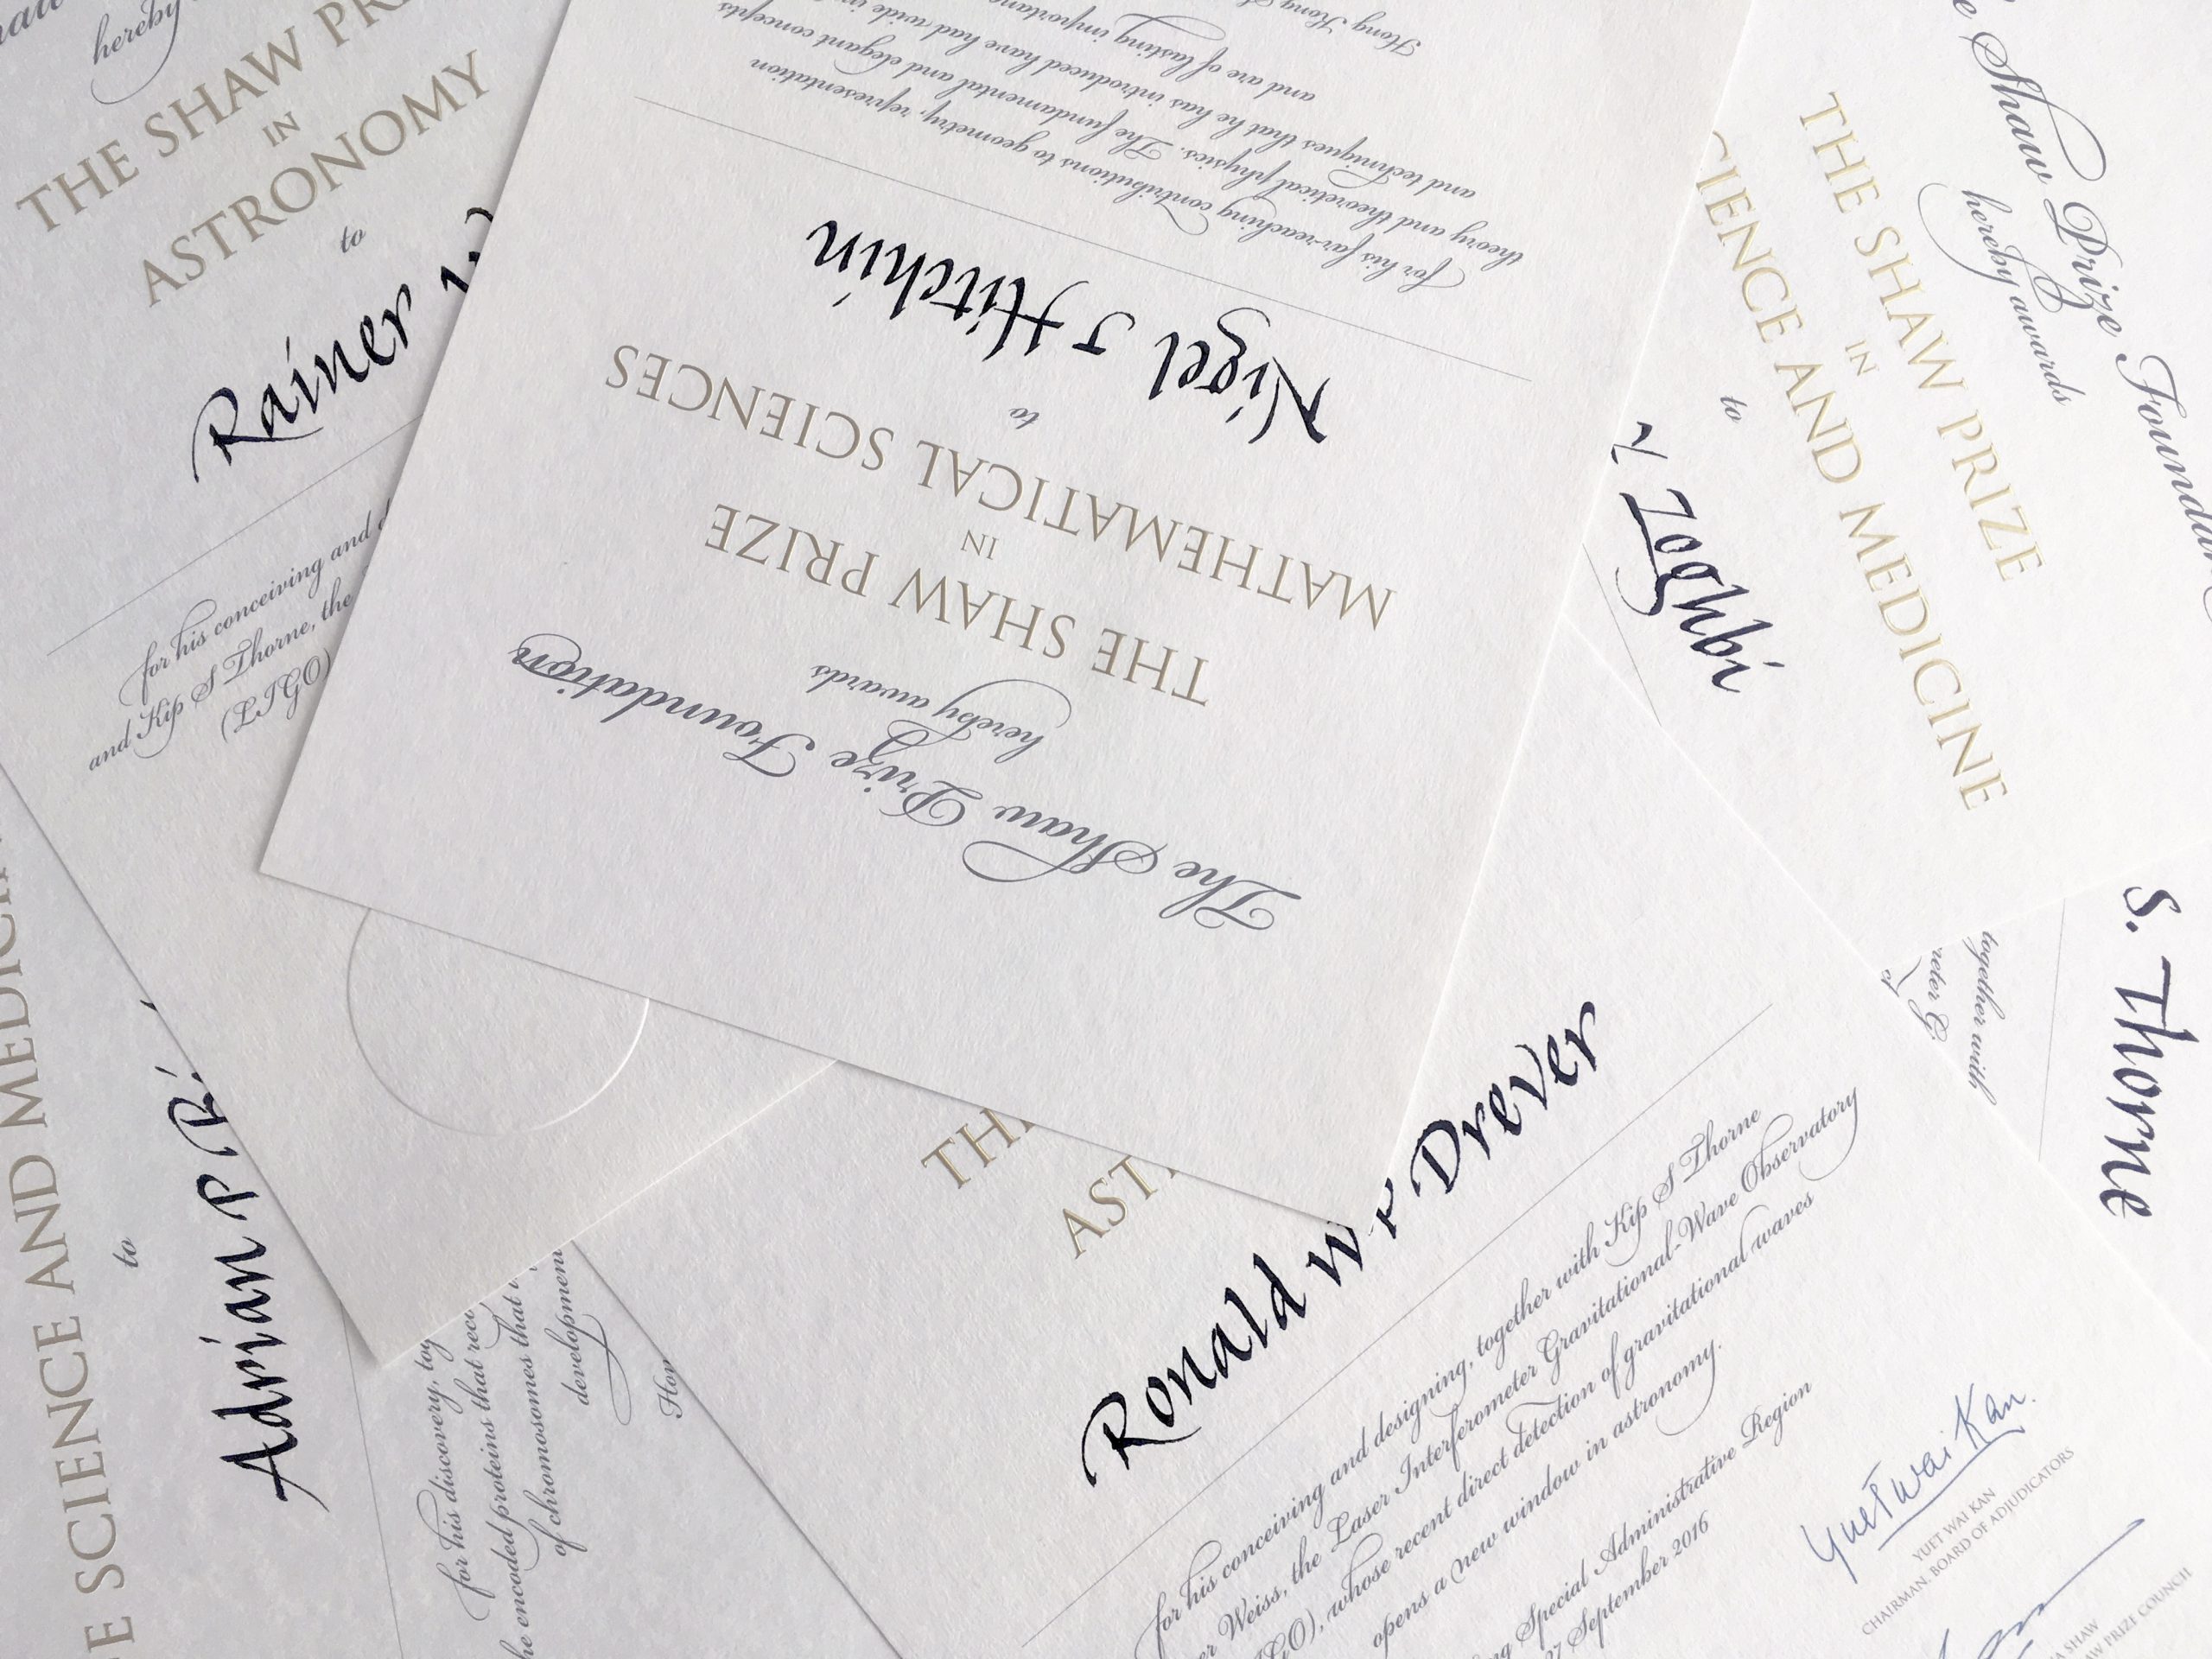 hereby
THE SHAW PR
IN
ASTRONOMY
to
Rainer
for his conceiving and
and Kip S Thorne, the
(LIGO)
The Shaw Prize Foundation
hereby awards
THE SHAW PRIZE
IN
MATHEMATICAL SCIENCES
to
Nigel J Hitchin
for his far-reaching contributions to geometry, representation
theory and theoretical physics. The fundamental and elegant concepts
and techniques that he has introduced have had wide
and are of lasting
Hong Kong
Shaw Prize
hereby awards
THE SHAW PRIZE
IN
SCIENCE AND MEDICINE
to
Zoghbi
S. Thorne
together with
SCIENCE AND
to
Adrian P
for his discovery,
encoded proteins that
of chromosomes that
development
Ronald W P Drever
for his conceiving and designing, together with Kip S Thorne
Weiss, the Laser Interferometer Gravitational-Wave Observatory
whose recent direct detection of gravitational waves
opens a new window in astronomy.
Special Administrative Region
27 September 2016
Yuet Wai Kan
YUET WAI KAN
CHAIRMAN, BOARD OF ADJUDICATORS
SHAW
PRIZE COUNCIL